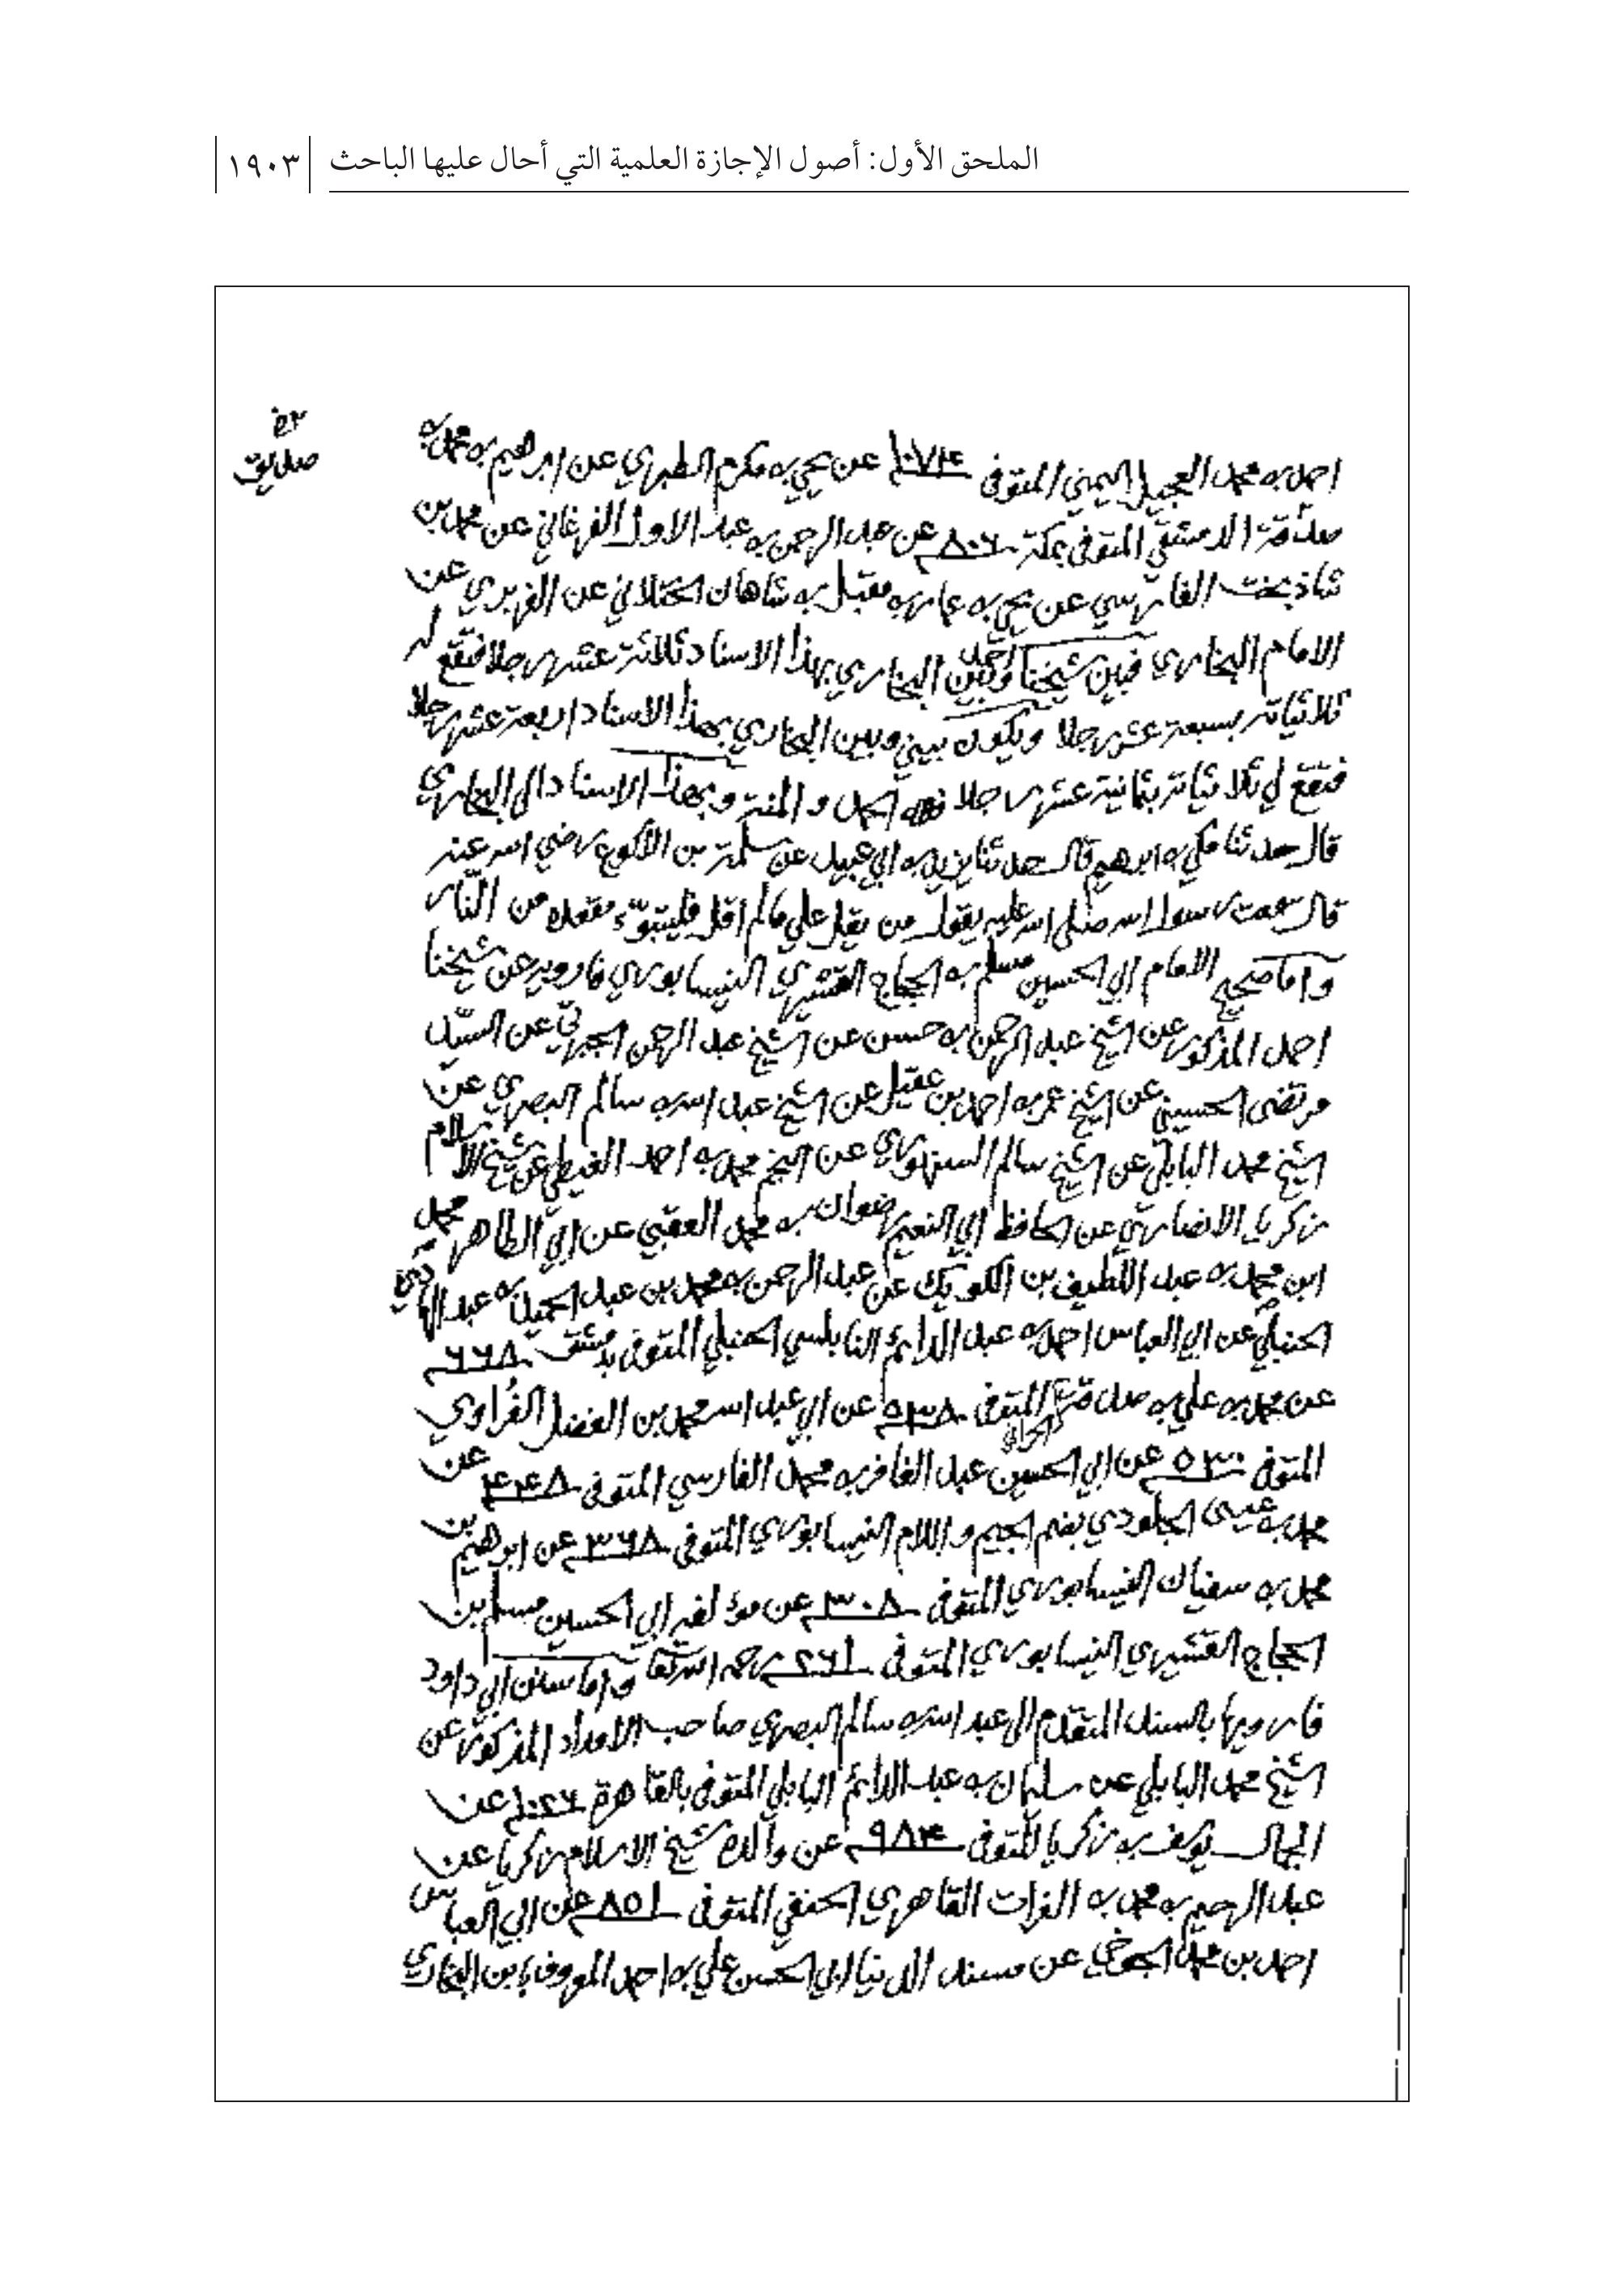 الملحق الأول: أصول الإجازة العلمية التي أحال عليها الباحث ١٩٠٣
احمد بن محمد العجيل اليمني المتوفى ١٠٧٤ عن يحيى بن مكرم الطبري عن ابرهيم بن محمد بن
صدقة الدمشقي المتوفى بمكة ٨٠٦ عن عبد الرحمن بن عبد الاول الفرغاني عن محمد بن
شاذبخت الفارسي عن يحيى بن عمار بن مقبل بن شاهان الختلاني عن الفربري عن
الامام البخاري فبين شيخنا احمد وبين البخاري بهذا الاسناد ثلاثة عشر رجلا فتقع له
ثلاثياته بسبعة عشر رجلا ويكون بيني وبين البخاري بهذا الاسناد اربعة عشر رجلا
فتقع لي ثلاثياته بثمانية عشر رجلا فلله الحمد والمنة وبهذا الاسناد الى البخاري
قال حدثنا مكي بن ابرهيم قال حدثنا يزيد بن ابي عبيد عن سلمة بن الأكوع رضي الله عنه
قال سمعت رسول الله صلى الله عليه يقول من يقل علي مالم اقل فليتبوّء مقعده من النار
واما صحيح الامام ابي الحسين مسلم بن الحجاج القشيري النيسابوري فارويه عن شيخنا
احمد المذكور عن الشيخ عبد الرحمن بن حسن عن الشيخ عبد الرحمن الجبرتي عن السيّد
مرتضى الحسيني عن الشيخ عمر بن احمد بن عقيل عن الشيخ عبد الله بن سالم البصري عن
الشيخ محمد البابلي عن الشيخ سالم السنهوري عن النجم محمد بن احمد الغيطي عن شيخ الاسلام
زكريا الانصاري عن الحافظ ابي النعيم رضوان بن محمد العقبي عن ابي الطاهر محمد
ابن محمد بن عبد اللطيف بن الكويك عن عبد الرحمن بن محمد بن عبد الحميد بن عبد الهادي
الحنبلي عن ابي العباس احمد بن عبد الدائم النابلسي الحنبلي المتوفى بدمشق ٦٦٨
عن محمد بن علي بن صدقة الحراني المتوفى ٥٣٨ عن ابي عبد الله محمد بن الفضل الفُراوي
المتوفى ٥٣٠ عن ابي الحسين عبد الغافر بن محمد الفارسي المتوفى ٤٤٨ عن
محمد بن عيسى الجلودي بضم الجيم واللام النيسابوري المتوفى ٣٦٨ عن ابرهيم بن
محمد بن سفيان النيسابوري المتوفى ٣٠٨ عن مؤلفه ابي الحسين مسلم بن
الحجاج القشيري النيسابوري المتوفى ٢٦١ رحمه الله تعا واما سنن ابي داود
فارويها بالسند المتقدم الى عبد الله بن سالم البصري صاحب الامداد المذكور عن
الشيخ محمد البابلي عن سليمان بن عبد الدائم البابلي المتوفى بالقاهرة ١٠٢٦ عن
الجمال يوسف بن زكريا المتوفى ٩٨٤ عن والده شيخ الاسلام زكريا عن
عبد الرحيم بن محمد بن الفرات القاهري الحنفي المتوفى ٨٥١ عن ابي العباس
احمد بن محمد الجوخي عن مسند الدنيا ابي الحسن علي بن احمد المعروف بابن البخاري